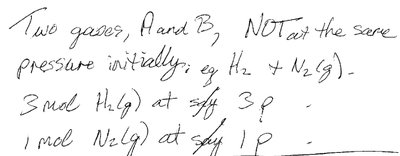 Two gases, A and B, NOT at the same
pressure initially; eg H2 + N2(g).
3 mol H2(g) at say 3p.
1 mol N2(g) at say 1p.